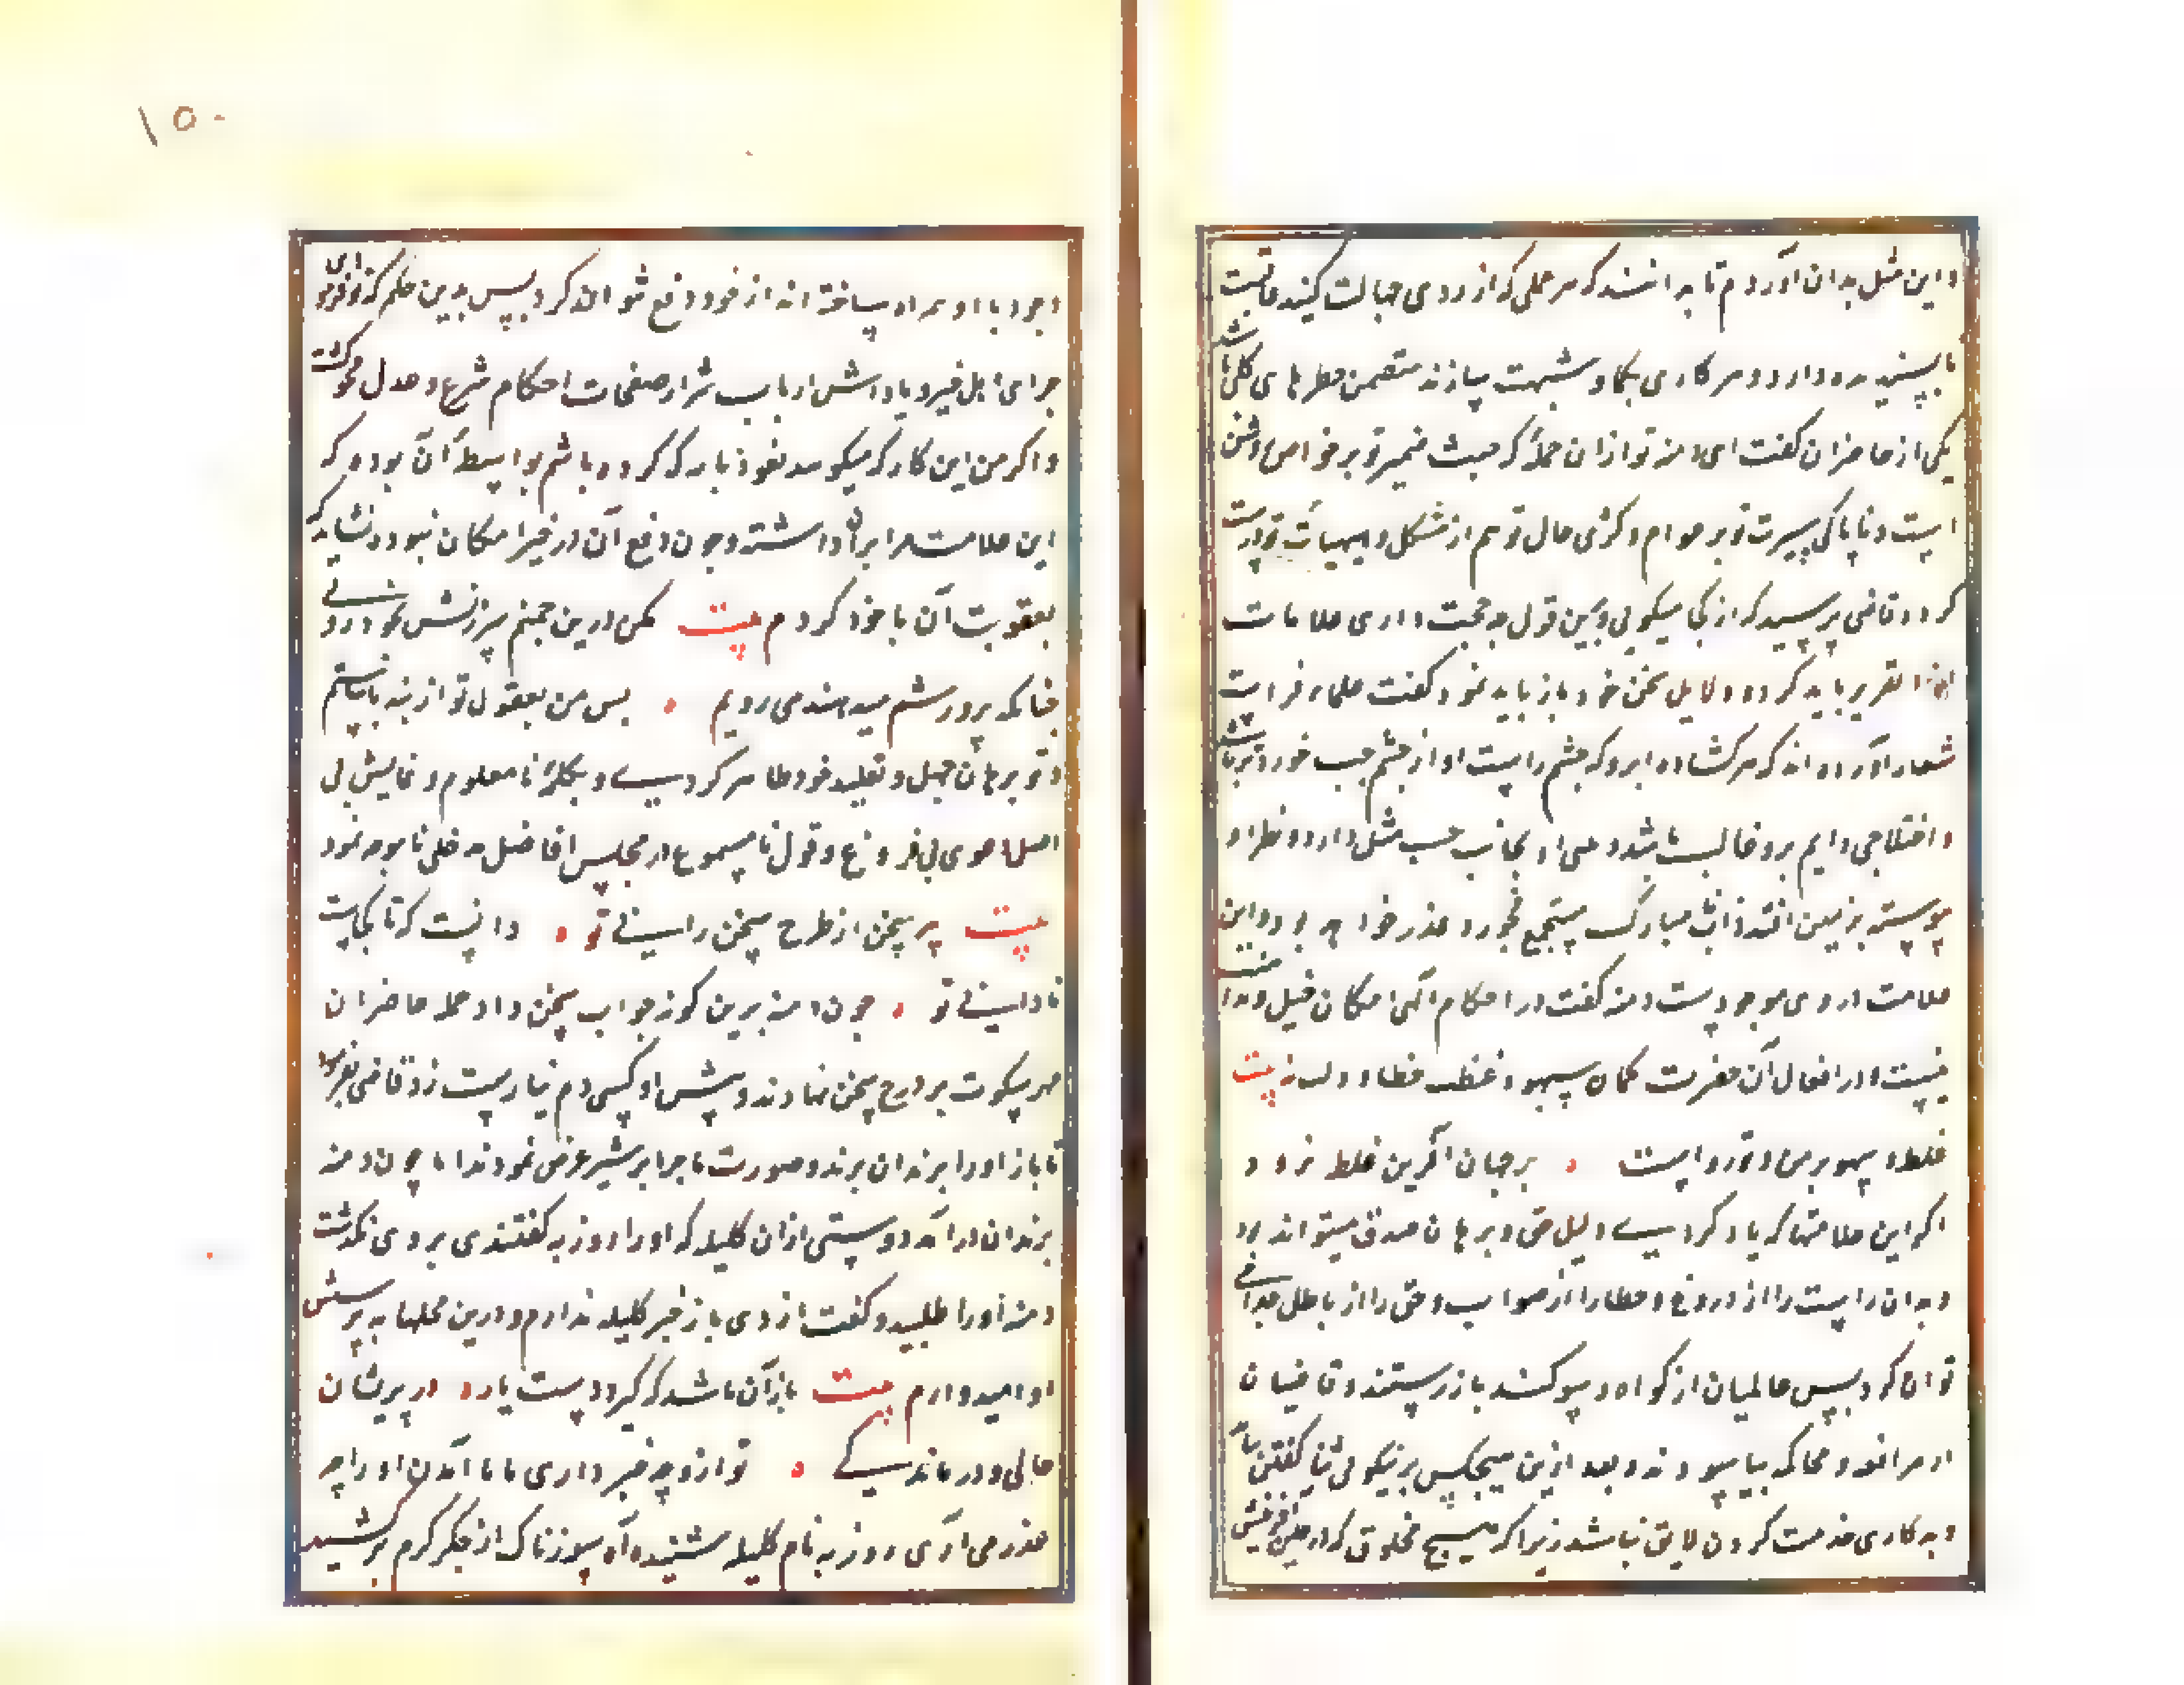 و این مثل بدان آوردم تا بدانند که هر عملی که از روی جهالت کنند عاقبت
ناپسندیده دارد و هر کاری بگمان و شبهت سازند متضمن خطرهای کلی باشد
یکی از حاضران گفت ای دمنه تو از آن جمله که خبث ضمیر تو بر خواص روشن
است و ناپاکی سیرت تو بر عوام و کژی حال تو هم از شکل و هیأت تو درست
کرده قاضی پرسید که از کجا میکویی و برین قول چه حجت داری علامات
آنرا تقریر باید کرد و دلایل سخن خود باز باید نمود گفت علماء فراست
شعار آورده اند که هر گشاده ابرو که چشم راست او از چشم چپ خوردتر باشد
و اختلاجی دایم برو غالب باشد و بینی او بجانب چپ مثل دارد و نظر او
پیوسته بزمین افتد ذات مبارک مستجمع فجور و غدر خواهد بود و این
علامت در وی موجودست دمنه گفت در احکام الهی امکان میل و مداهنت
نیست و در افعال آن حضرت گمان سهو و غلط خطا و دلت نه بیت
غلط و سهو بر من و تو رواست ۰ بر جهان آفرین غلط نرود
اگر این علامتها که یاد کردی دلیل حق و برهان صدق میتواند بود
و بدان راست را از دروغ و خطا را از صواب و حق را از باطل جدا
توان کرد پس عالمیان از گواه و سوگند باز رستند و قاضیان
از مرافعه و محاکمه بیاسودند و بعد ازین هیچکس بر نیکویی ثنا گفتن
و بد کاری مذمت کردن لایق نباشد زیرا که هیچ مخلوق که در حین آفرینش
۱۵۰
وجود با او همراه ساخته اند از خود دفع نتواند کرد پس بدین حکم که تو فرموده‌ای
جزای اهل خیر و پاداش ارباب شر از صفحات احکام شرع و عدل محو گشت
و اگر من این کار که میگویند نعوذ بالله که کرده باشم بواسطه آن بوده که
این علامت مرا بر آن داشته و چون دفع آن در حیز امکان نبوده نشاید که
بعقوبت آن ماخوذ گردم بیت مکن درین چمنم سرزنش بخودرویی
چنانکه پرورشم میدهند می رویم ۰ پس من بقول تو از بند بارستم
و تو برهان جهل و تقلید خود ظاهر کردی و بکلمه نامعلوم و نمایش بی
اصل و دعوی بی فروغ و قول نامسموع در مجلس افاضل مدخلی ناموجه نمود
بیت پر سخن از طرح سخن رانی تو ۰ دانست که تا کجاست
نادانی تو ۰ چون دمنه برین گونه جواب سخن داد جمله حاضران
مهر سکوت بر درج سخن نهادند و پیش او کسی دم نیارست زد قاضی بفرمود
تا باز او را بزندان بردند و صورت ماجرا بر شیر عرض نمودند اما چون دمنه
بزندان درآمد دوستی از آن کلیله که او را روزبه گفتندی بر وی گذشت
دمنه او را طلبید و گفت از دی باز خبر کلیله ندارم و درین محلها به پرسش
او امیدوارم بیت یار آن باشد که گیرد دست یار در پریشان
حالی و درماندگی ۰ تو ازو چه خبر داری تا ما آمدن او را چه
عذر می آری روزبه نام کلیله شنیده آه سوزناک از جگر گرم برکشید